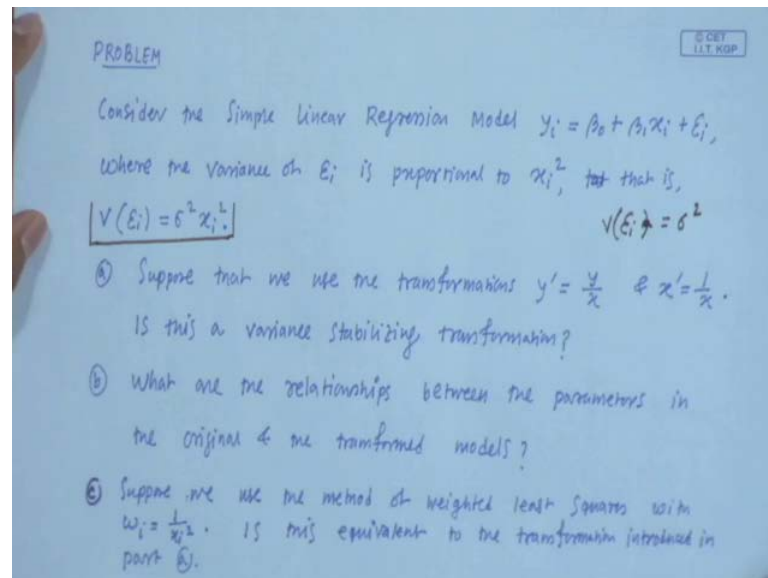 © CET
I.I.T. KGP
PROBLEM
Consider the Simple Linear Regression Model yᵢ = β₀ + β₁xᵢ + εᵢ,
where the variance of εᵢ is proportional to xᵢ², that is,
V(εᵢ) = σ²xᵢ². V(εᵢ) = σ²
ⓐ Suppose that we use the transformations y' = y/x & x' = 1/x.
Is this a variance stabilizing transformation?
ⓑ What are the relationships between the parameters in
the original & the transformed models?
ⓒ Suppose we use the method of weighted least squares with
wᵢ = 1/xᵢ². Is this equivalent to the transformation introduced in
part ⓐ.